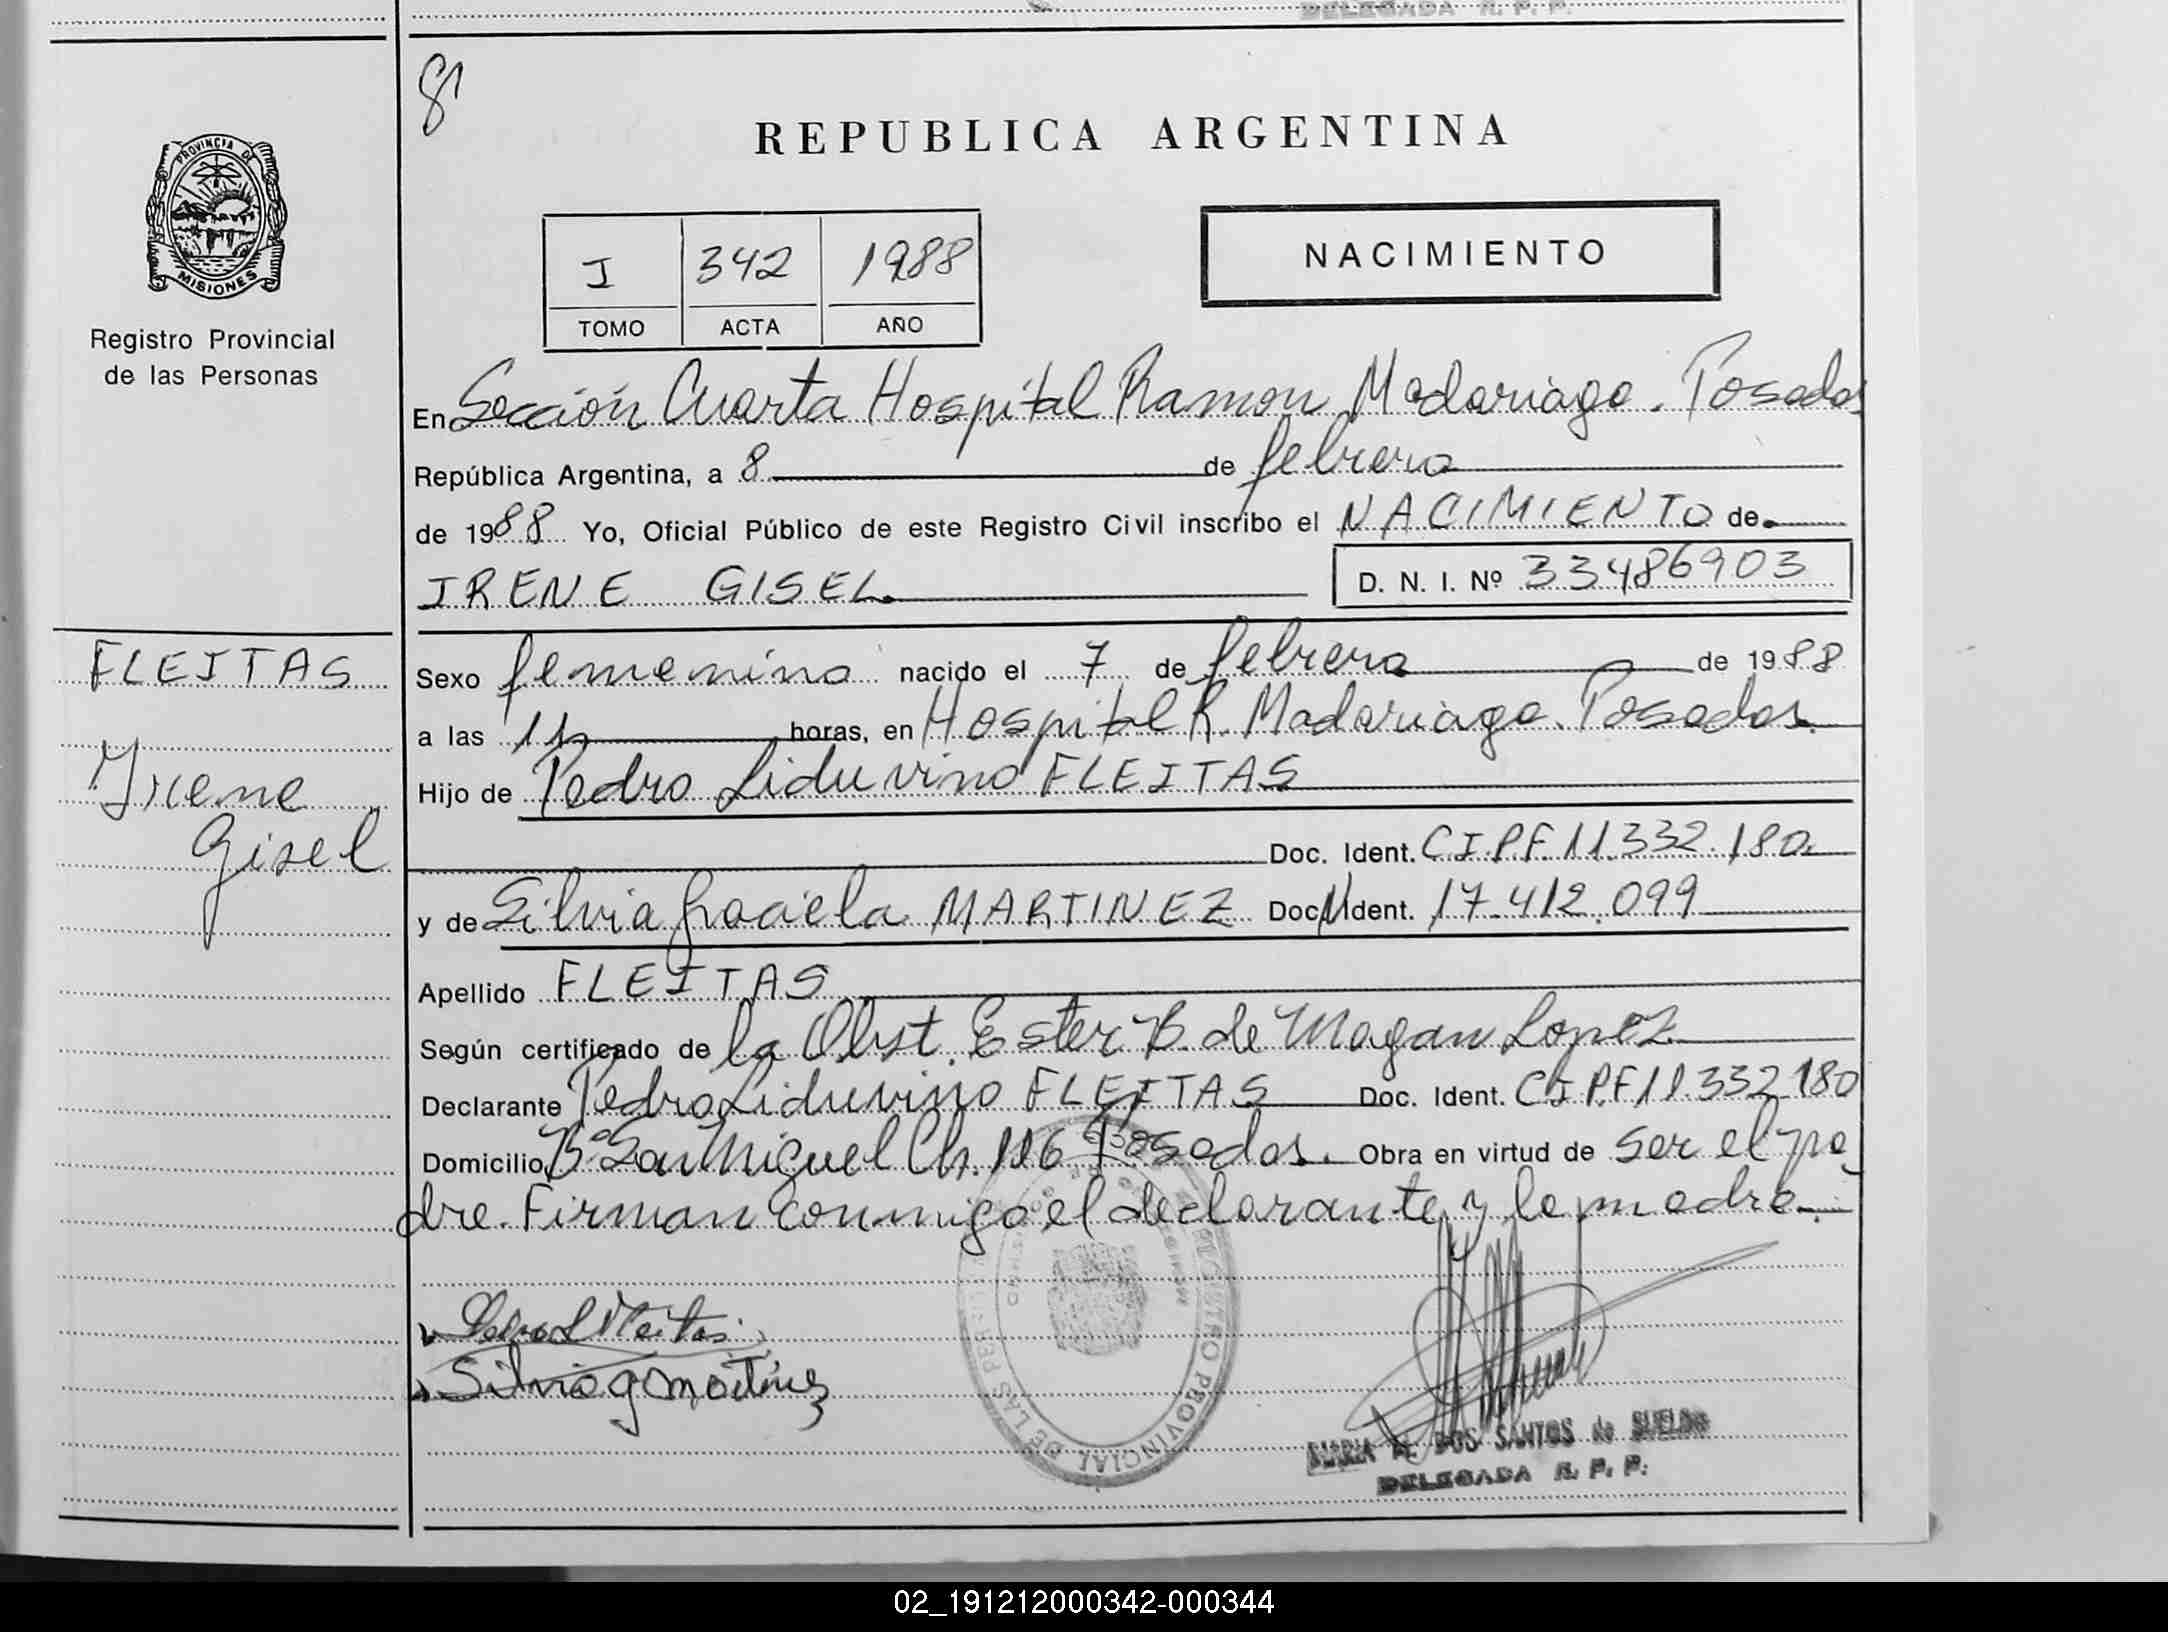 DELEGADA R. P. P.
8
PROVINCIA DE
MISIONES
Registro Provincial
de las Personas
REPUBLICA ARGENTINA
I 342 1988
TOMO ACTA AÑO
NACIMIENTO
En Sección Cuarta Hospital Ramon Madariaga. Posadas
República Argentina, a 8 de febrero
de 1988 Yo, Oficial Público de este Registro Civil inscribo el NACIMIENTO de
IRENE GISEL D. N. I. Nº 33486903
FLEITAS
Irene
Gisel
Sexo femenino nacido el 7 de febrero de 1988
a las 11 horas, en Hospital R. Madariaga. Posadas.
Hijo de Pedro Liduvino FLEITAS
Doc. Ident. C.I.P.F. 11.332.180.
y de Silvia Graciela MARTINEZ Doc. Ident. 17.412.099
Apellido FLEITAS
Según certificado de la Obst. Ester B. de Magan Lopez
Declarante Pedro Liduvino FLEITAS Doc. Ident. C.I.P.F 11.332.180
Domicilio Bº San Miguel Ch. 116 Posadas. Obra en virtud de ser el pa
dre. Firman conmigo el declarante y la madre.
Pedro L Fleitas
Silvia g martinez
REGISTRO PROVINCIAL DE LAS PERSONAS
MARIA DOS SANTOS de SUELDO
DELEGADA R. P. P.
02_191212000342-000344